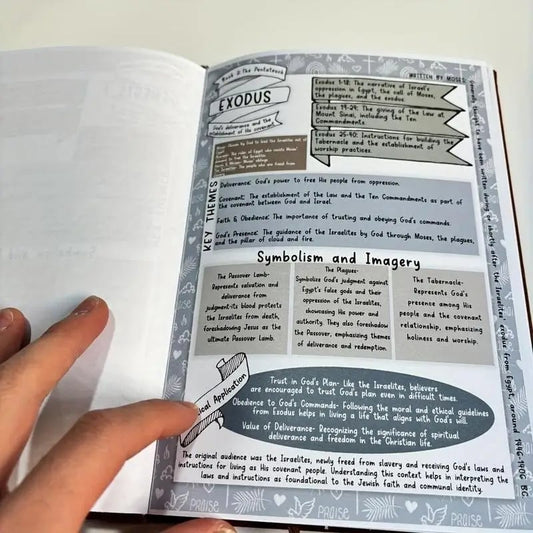 Book 2: The Pentateuch
EXODUS
God's deliverance and the
establishment of His covenant
WRITTEN BY MOSES:
Exodus 1-18: The narrative of Israel's
oppression in Egypt, the call of Moses,
the plagues, and the exodus.
Exodus 19-24: The giving of the Law at
Mount Sinai, including the Ten
Commandments.
Exodus 25-40: Instructions for building the
Tabernacle and the establishment of
worship practices.
Moses: Chosen by God to lead the Israelites out of
Pharaoh: The ruler of Egypt who resists Moses'
Aaron & Miriam: Moses' siblings
The Israelites: The people who are freed from
KEY THEMES
Deliverance: God's power to free His people from oppression.
Covenant: The establishment of the Law and the Ten Commandments as part of
the covenant between God and Israel.
Faith & Obedience: The importance of trusting and obeying God's commands.
God's Presence: The guidance of the Israelites by God through Moses, the plagues,
and the pillar of cloud and fire.
Symbolism and Imagery
The Passover Lamb-
Represents salvation and
deliverance from
judgment-its blood protects
the Israelites from death,
foreshadowing Jesus as the
ultimate Passover Lamb.
The Plagues-
Symbolize God's judgment against
Egypt's false gods and their
oppression of the Israelites,
showcasing His power and
authority. They also foreshadow
the Passover, emphasizing themes
of deliverance and redemption.
The Tabernacle-
Represents God's
presence among His
people and the covenant
relationship, emphasizing
holiness and worship.
ical Application
Trust in God's Plan- Like the Israelites, believers
are encouraged to trust God's plan even in difficult times.
Obedience to God's Commands- Following the moral and ethical guidelines
from Exodus helps in living a life that aligns with God's will.
Value of Deliverance- Recognizing the significance of spiritual
deliverance and freedom in the Christian life.
The original audience was the Israelites, newly freed from slavery and receiving God's laws and
instructions for living as His covenant people. Understanding this context helps in interpreting the
laws and instructions as foundational to the Jewish faith and communal identity.
thought to have been written during or shortly after the Israelites' exodus from Egypt, around 1446-1406 BC
PRAISE
PRAISE
PRAISE